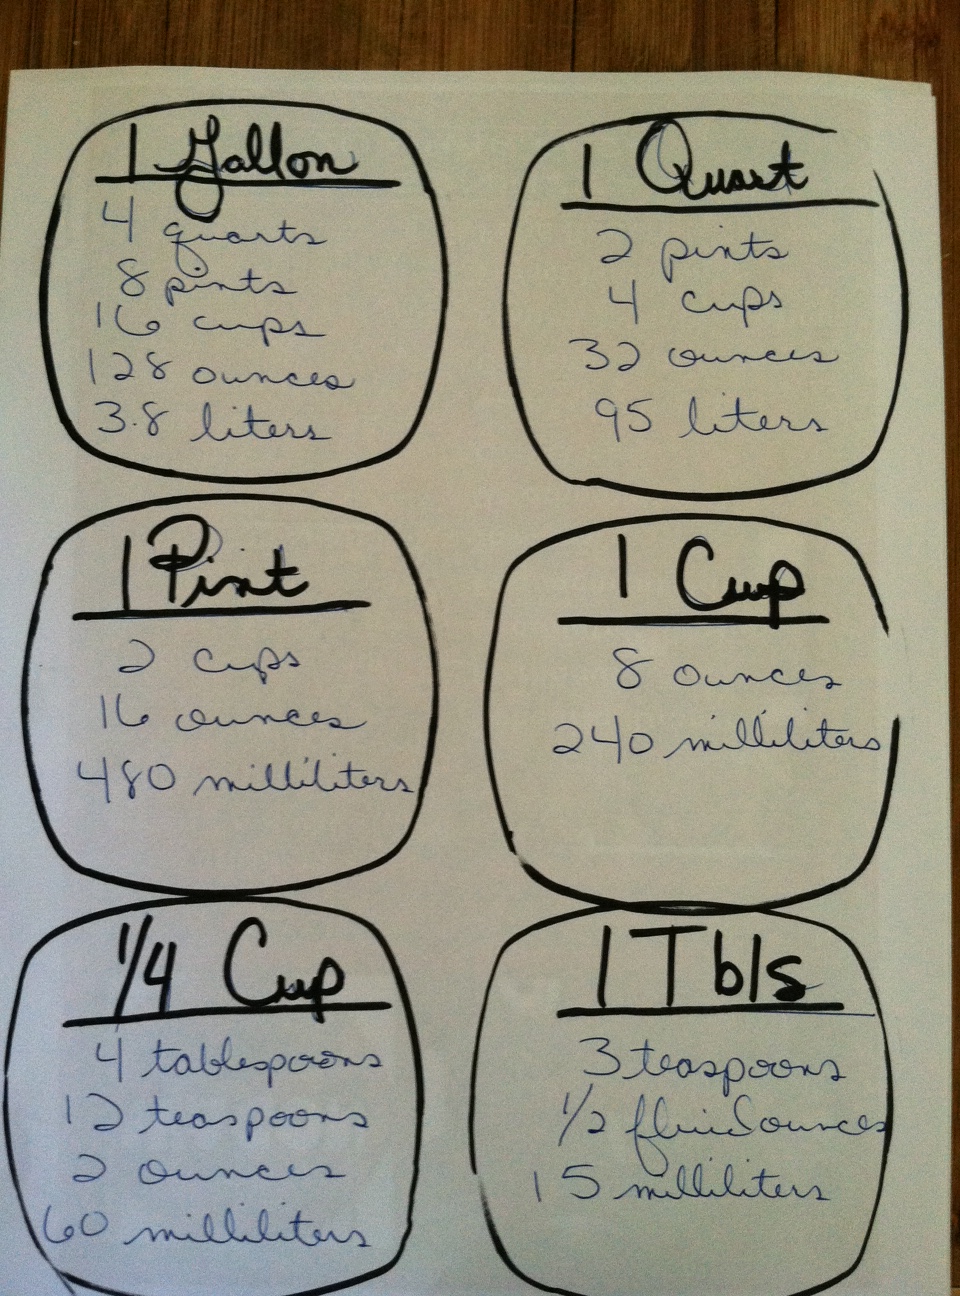 1 Gallon
4 quarts
8 pints
16 cups
128 ounces
3.8 liters
1 Quart
2 pints
4 cups
32 ounces
95 liters
1 Pint
2 cups
16 ounces
480 milliliters
1 Cup
8 ounces
240 milliliters
1/4 Cup
4 tablespoons
12 teaspoons
2 ounces
60 milliliters
1 Tbls
3 teaspoons
1/2 fluid ounces
15 milliliters